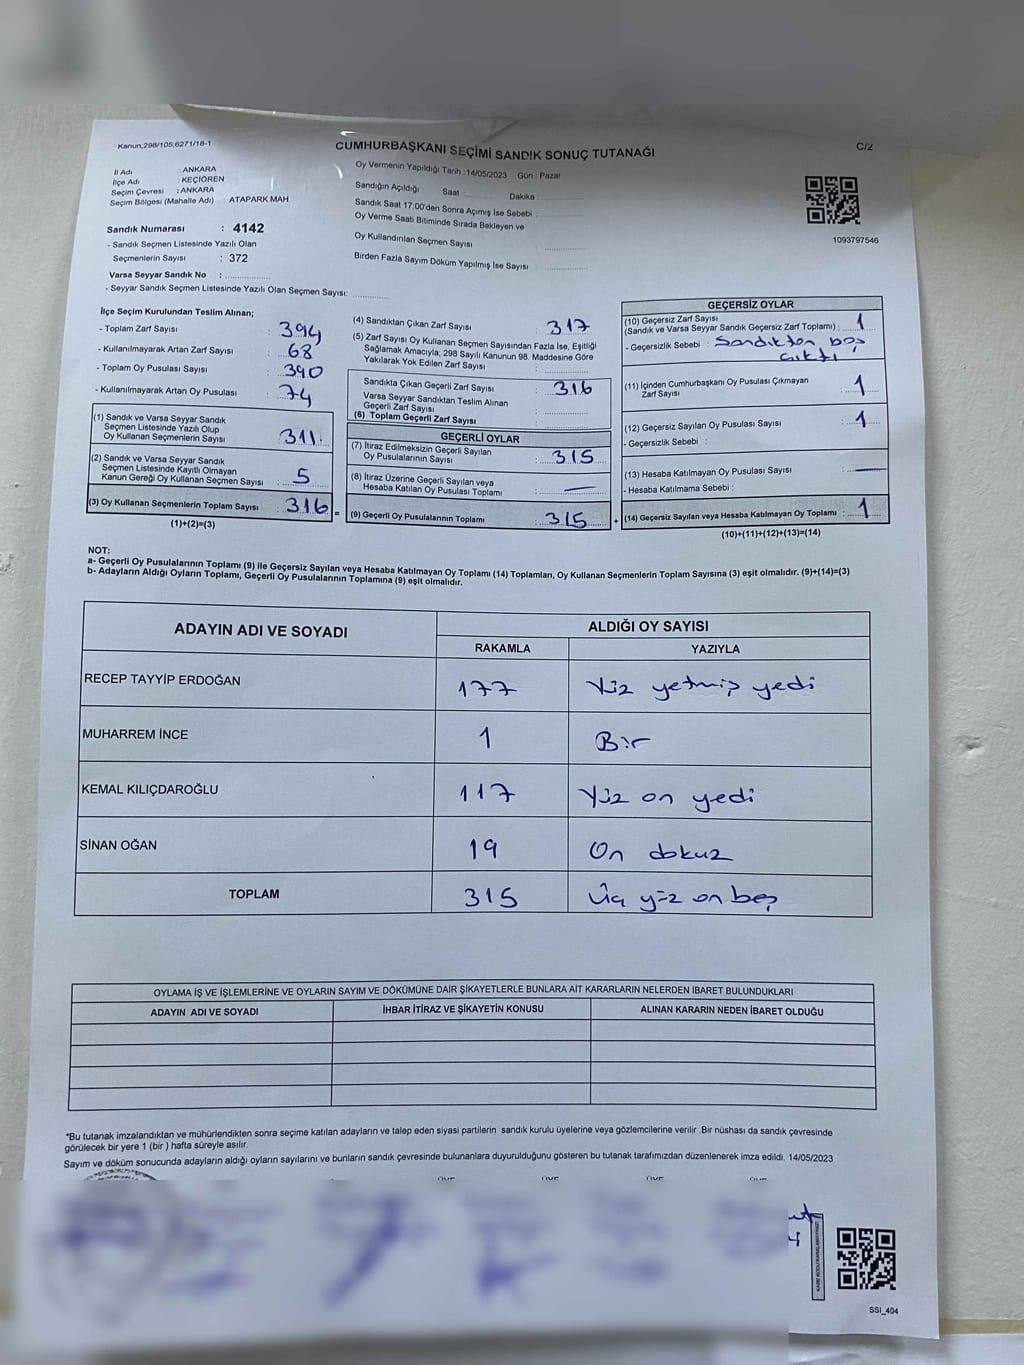 Kanun,298/105,6271/18-1
CUMHURBAŞKANI SEÇİMİ SANDIK SONUÇ TUTANAĞI
C/2
İl Adı : ANKARA
İlçe Adı : KEÇİÖREN
Seçim Çevresi : ANKARA
Seçim Bölgesi (Mahalle Adı) : ATAPARK MAH.
Oy Vermenin Yapıldığı Tarih : 14/05/2023 Gün : Pazar
Sandığın Açıldığı Saat Dakika :
Sandık Saat 17:00'den Sonra Açımış İse Sebebi :
Oy Verme Saati Bitiminde Sırada Bekleyen ve
Oy Kullandırılan Seçmen Sayısı
Birden Fazla Sayım Döküm Yapılmış İse Sayısı
1093797546
Sandık Numarası : 4142
- Sandık Seçmen Listesinde Yazılı Olan
Seçmenlerin Sayısı : 372
Varsa Seyyar Sandık No :
- Seyyar Sandık Seçmen Listesinde Yazılı Olan Seçmen Sayısı:
İlçe Seçim Kurulundan Teslim Alınan;
- Toplam Zarf Sayısı : 394
- Kullanılmayarak Artan Zarf Sayısı : 68
- Toplam Oy Pusulası Sayısı : 390
- Kullanılmayarak Artan Oy Pusulası : 74
(1) Sandık ve Varsa Seyyar Sandık
Seçmen Listesinde Yazılı Olup
Oy Kullanan Seçmenlerin Sayısı : 311
(2) Sandık ve Varsa Seyyar Sandık
Seçmen Listesinde Kayıtlı Olmayan
Kanun Gereği Oy Kullanan Seçmen Sayısı : 5
(3) Oy Kullanan Seçmenlerin Toplam Sayısı : 316
(1)+(2)=(3)
(4) Sandıktan Çıkan Zarf Sayısı : 317
(5) Zarf Sayısı Oy Kullanan Seçmen Sayısından Fazla İse, Eşitliği
Sağlamak Amacıyla, 298 Sayılı Kanunun 98. Maddesine Göre
Yakılarak Yok Edilen Zarf Sayısı :
Sandıkta Çıkan Geçerli Zarf Sayısı : 316
Varsa Seyyar Sandıktan Teslim Alınan
Geçerli Zarf Sayısı :
(6) Toplam Geçerli Zarf Sayısı
GEÇERLİ OYLAR
(7) İtiraz Edilmeksizin Geçerli Sayılan
Oy Pusulalarının Sayısı : 315
(8) İtiraz Üzerine Geçerli Sayılan veya
Hesaba Katılan Oy Pusulası Toplamı : —
= (9) Geçerli Oy Pusulalarının Toplamı : 315
GEÇERSİZ OYLAR
(10) Geçersiz Zarf Sayısı
(Sandık ve Varsa Seyyar Sandık Geçersiz Zarf Toplamı) : 1
- Geçersizlik Sebebi : Sandıktan boş
çıktı
(11) İçinden Cumhurbaşkanı Oy Pusulası Çıkmayan
Zarf Sayısı : 1
(12) Geçersiz Sayılan Oy Pusulası Sayısı : 1
- Geçersizlik Sebebi :
(13) Hesaba Katılmayan Oy Pusulası Sayısı : —
- Hesaba Katılmama Sebebi :
+ (14) Geçersiz Sayılan veya Hesaba Katılmayan Oy Toplamı : 1
(10)+(11)+(12)+(13)=(14)
NOT:
a- Geçerli Oy Pusulalarının Toplamı (9) ile Geçersiz Sayılan veya Hesaba Katılmayan Oy Toplamı (14) Toplamları, Oy Kullanan Seçmenlerin Toplam Sayısına (3) eşit olmalıdır. (9)+(14)=(3)
b- Adayların Aldığı Oyların Toplamı, Geçerli Oy Pusulalarının Toplamına (9) eşit olmalıdır.
ADAYIN ADI VE SOYADI
ALDIĞI OY SAYISI
RAKAMLA YAZIYLA
RECEP TAYYİP ERDOĞAN 177 Yüz yetmiş yedi
MUHARREM İNCE 1 Bir
KEMAL KILIÇDAROĞLU 117 Yüz on yedi
SİNAN OĞAN 19 On dokuz
TOPLAM 315 Üç yüz on beş
OYLAMA İŞ VE İŞLEMLERİNE VE OYLARIN SAYIM VE DÖKÜMÜNE DAİR ŞİKAYETLERLE BUNLARA AİT KARARLARIN NELERDEN İBARET BULUNDUKLARI
ADAYIN ADI VE SOYADI İHBAR İTİRAZ VE ŞİKAYETİN KONUSU ALINAN KARARIN NEDEN İBARET OLDUĞU
*Bu tutanak imzalandıktan ve mühürlendikten sonra seçime katılan adayların ve talep eden siyasi partilerin sandık kurulu üyelerine veya gözlemcilerine verilir. Bir nüshası da sandık çevresinde
görülecek bir yere 1 (bir) hafta süreyle asılır.
Sayım ve döküm sonucunda adayların aldığı oyların sayılarını ve bunların sandık çevresinde bulunanlara duyurulduğunu gösteren bu tutanak tarafımızdan düzenlenerek imza edildi. 14/05/2023
SSI_404